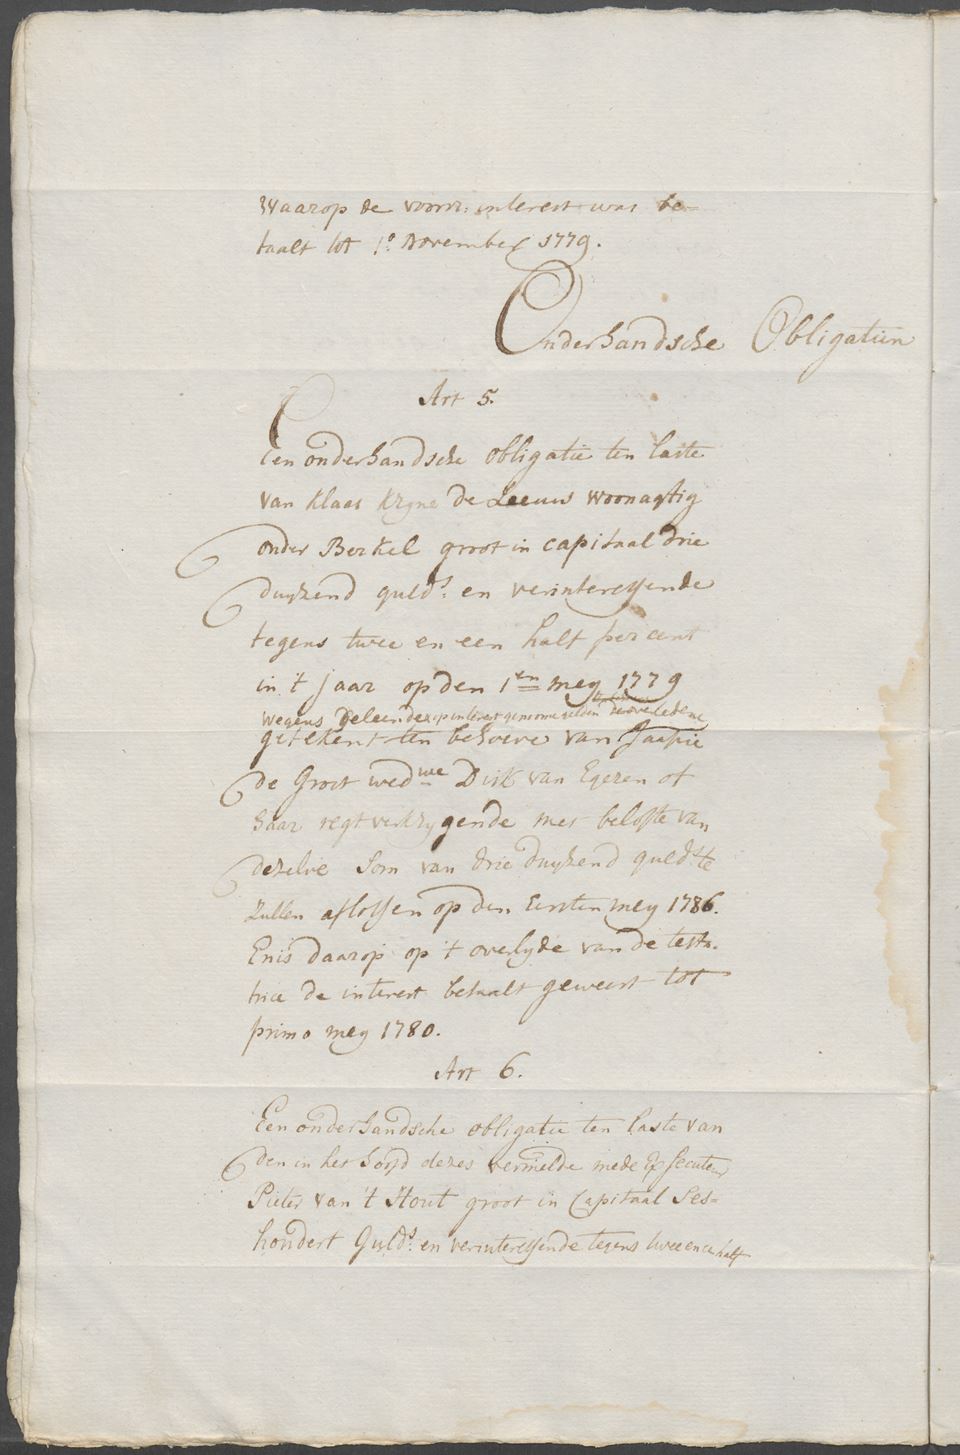 Waarop de voorn: interest was be=
taalt tot 1º November 1779.
Onderhandsche Obligatien
Art 5.
Een onderhandsche obligatie ten laste
van Klaas Kryne de Leeuw woonagtig
onder Berkel groot in capitaal drie
duyzend guld.s: en verinteressende
tegens twee en een half per cent
in 't jaar op den 1en mey 1779
wegens Geleende op interest genome gelden de overledene
getekent ten behoeve van Jaapie
de Groot wedwe Dirk van Egeren of
haar regtverkrygende met belofte van
dezelve Som van drie duyzend guld.s te
zullen aflossen op den Eersten mey 1786.
En is daarop op 't overlyde van de testa-
trice de interest betaalt geweest tot
primo mey 1780.
Art 6.
Een onderhandsche obligatie ten laste van
den in het hoofd dezes vermelde mede Executeur
Pieter van 't Hout groot in Capitaal Ses=
hondert Guld.s: en verinteressende tegens twee en een half